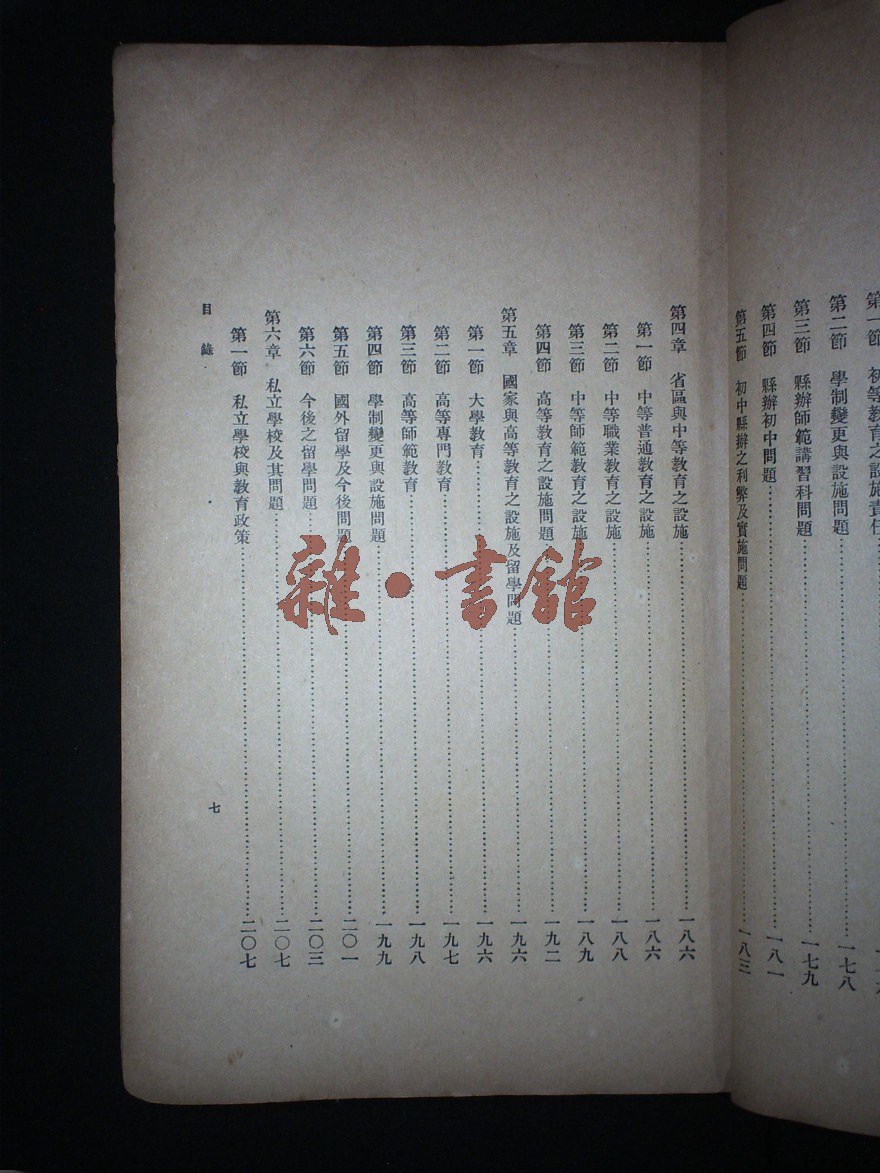 第一節　初等教育之設施責任
第二節　學制變更與設施問題……一七八
第三節　縣辦師範講習科問題……一七九
第四節　縣辦初中問題……一八一
第五節　初中縣辦之利弊及實施問題……一八三
第四章　省區與中等教育之設施……一八六
第一節　中等普通教育之設施……一八六
第二節　中等職業教育之設施……一八八
第三節　中等師範教育之設施……一八九
第四節　高等教育之設施問題……一九二
第五章　國家與高等教育之設施及留學問題……一九六
第一節　大學教育……一九六
第二節　高等專門教育……一九七
第三節　高等師範教育……一九八
第四節　學制變更與設施問題……一九九
第五節　國外留學及今後問題……二〇一
第六節　今後之留學問題……二〇三
第六章　私立學校及其問題……二〇七
第一節　私立學校與教育政策……二〇七
目錄
七
雜·書館